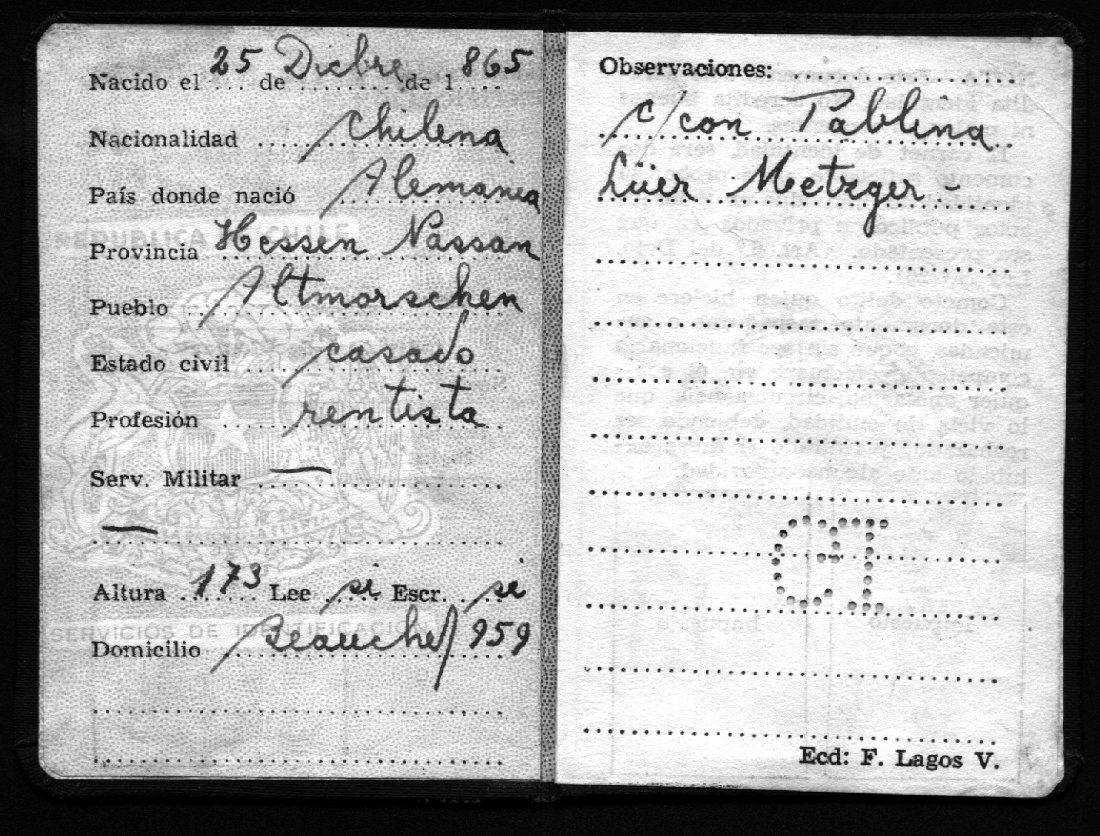 Nacido el 25 de Dicbre de 1865
Nacionalidad Chilena
País donde nació Alemania
Provincia Hessen Nassau
Pueblo Altmorschen
Estado civil casado
Profesión rentista
Serv. Militar —
—
Altura 173 Lee si Escr. si
Domicilio Beauchef 959
REPUBLICA DE CHILE
SERVICIOS DE IDENTIFICACION
Observaciones:
c/con Pablina
Lüer Metzger -
Ecd: F. Lagos V.